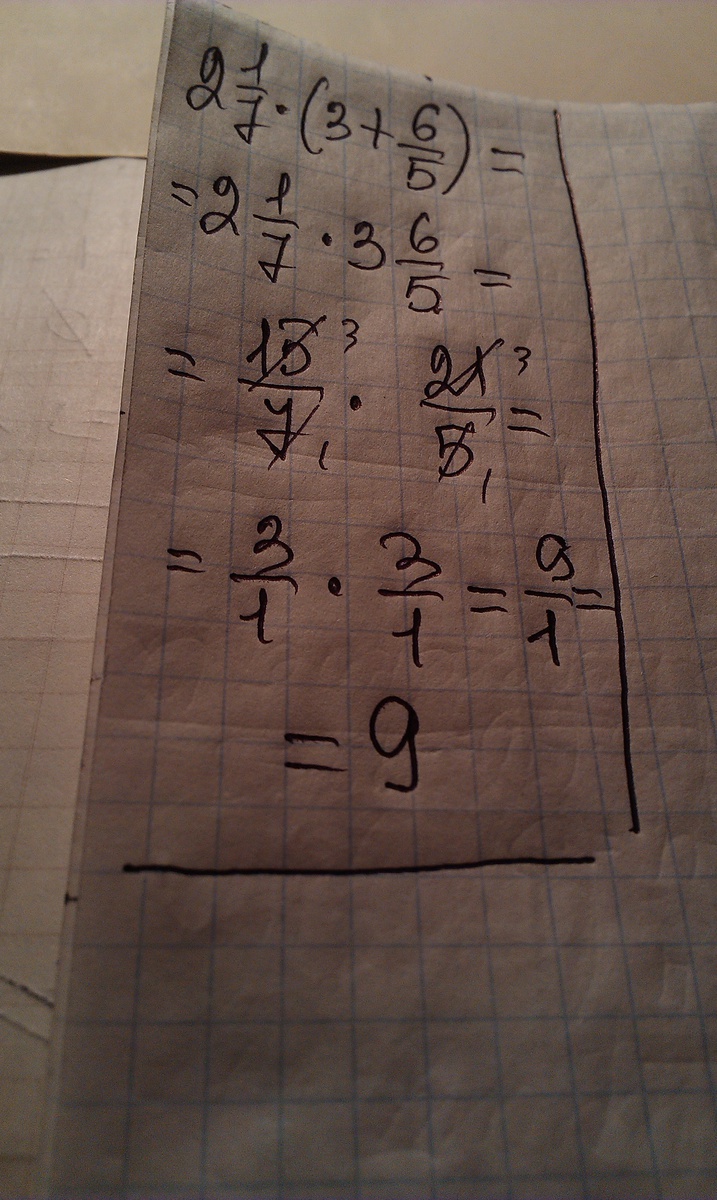 2 1/7 · (3 + 6/5) =
= 2 1/7 · 3 6/5 =
= 15/7 3 1 · 21/5 3 1 =
= 3/1 · 3/1 = 9/1 =
= 9